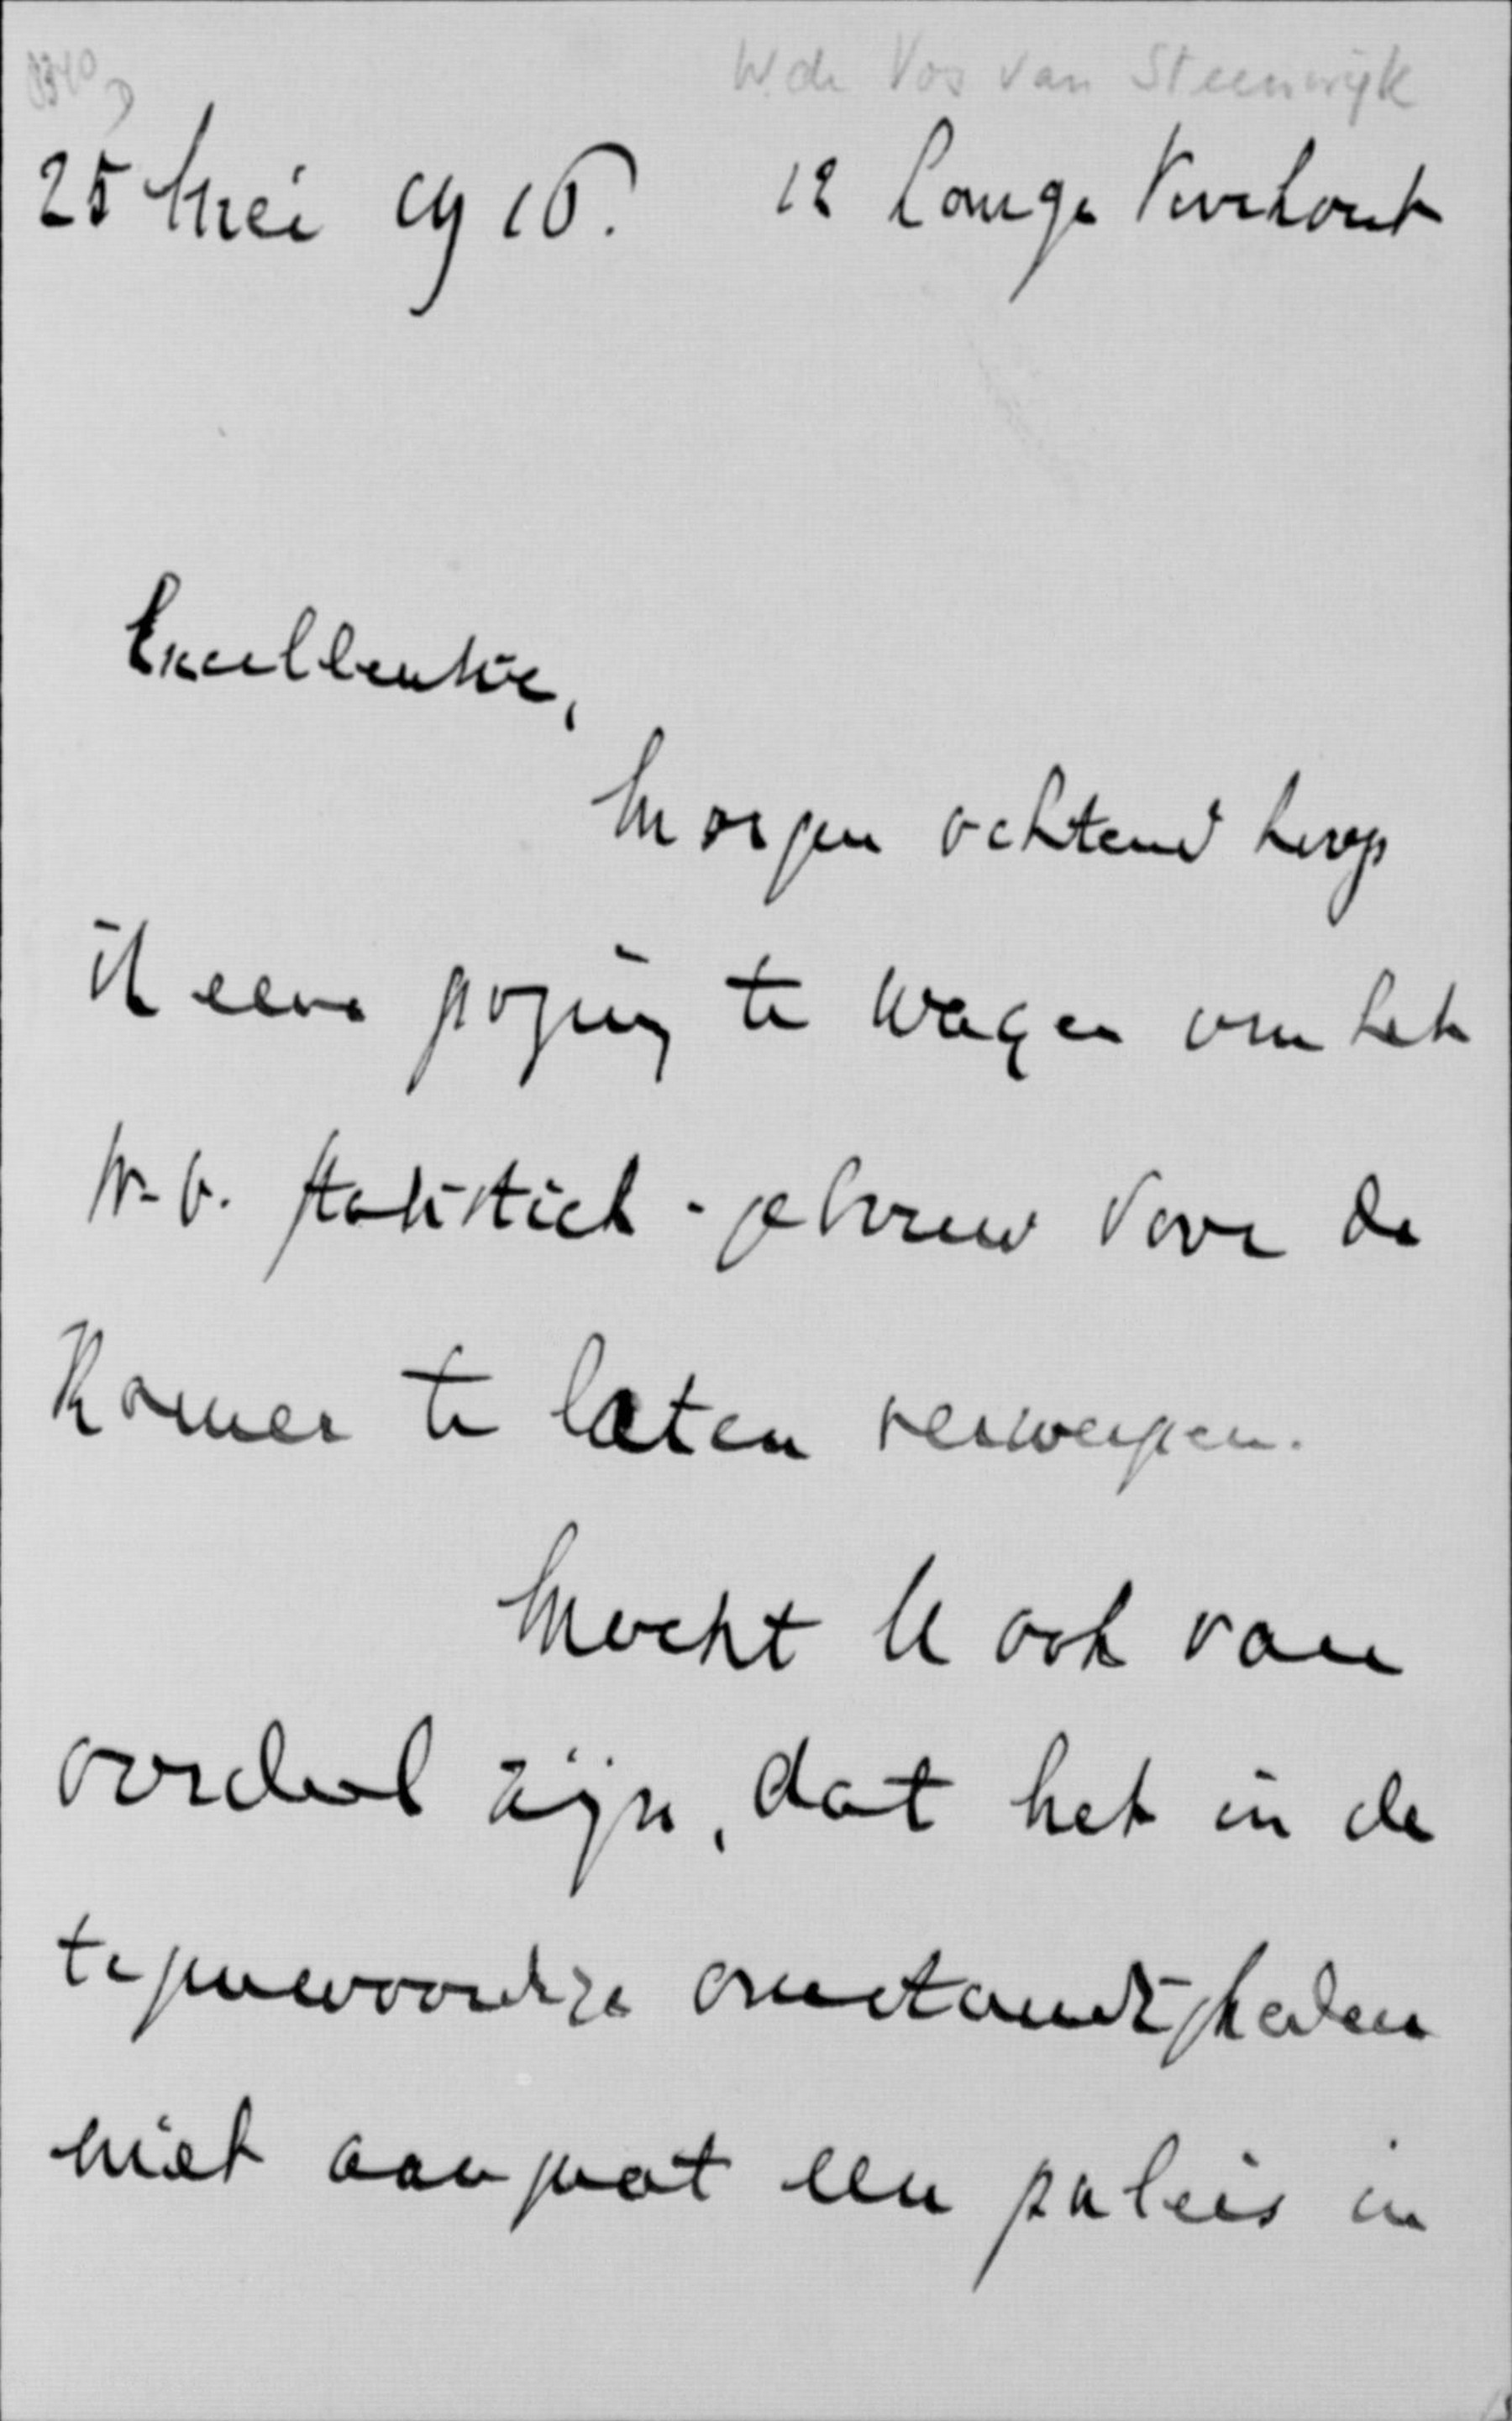 W. de Vos van Steenwijk
25 Mei 1916. 12 Lange Voorhout
Excellentie,
Morgen ochtend hoop
ik eene poging te wagen om het
w.o. statistiek-gebouw door de
Kamer te laten verwerpen.
Mocht U ook van
oordeel zijn, dat het in de
tegenwoordige omstandigheden
niet aangaat een paleis in